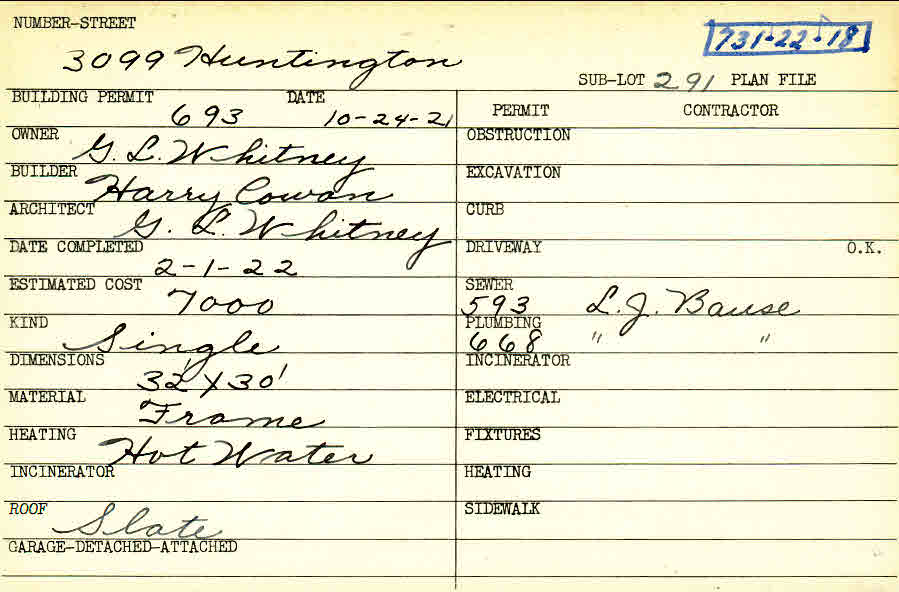 NUMBER-STREET
731-22-18
3099 Huntington
SUB-LOT 291 PLAN FILE
BUILDING PERMIT DATE
693 10-24-21
OWNER
G. L. Whitney
BUILDER
Harry Cowan
ARCHITECT
G. L. Whitney
DATE COMPLETED
2-1-22
ESTIMATED COST
7000
KIND
Single
DIMENSIONS
32' x 30'
MATERIAL
Frame
HEATING
Hot Water
INCINERATOR
ROOF
Slate
GARAGE-DETACHED-ATTACHED
PERMIT CONTRACTOR
OBSTRUCTION
EXCAVATION
CURB
DRIVEWAY O.K.
SEWER
593 L. J. Bause
PLUMBING
668 " "
INCINERATOR
ELECTRICAL
FIXTURES
HEATING
SIDEWALK